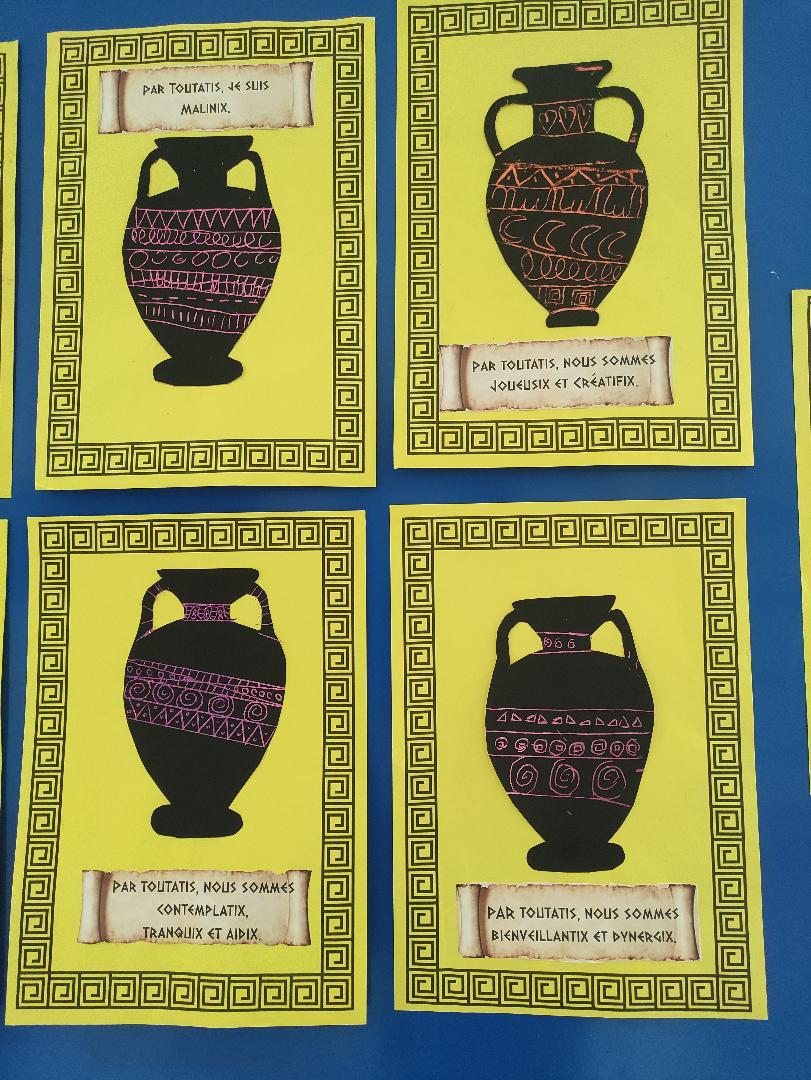 PAR TOUTATIS, JE SUIS
MALINIX.
PAR TOUTATIS, NOUS SOMMES
JOUEUSIX ET CRÉATIFIX.
PAR TOUTATIS, NOUS SOMMES
CONTEMPLATIX,
TRANQUIX ET AIDIX.
PAR TOUTATIS, NOUS SOMMES
BIENVEILLANTIX ET DYNERGIX.